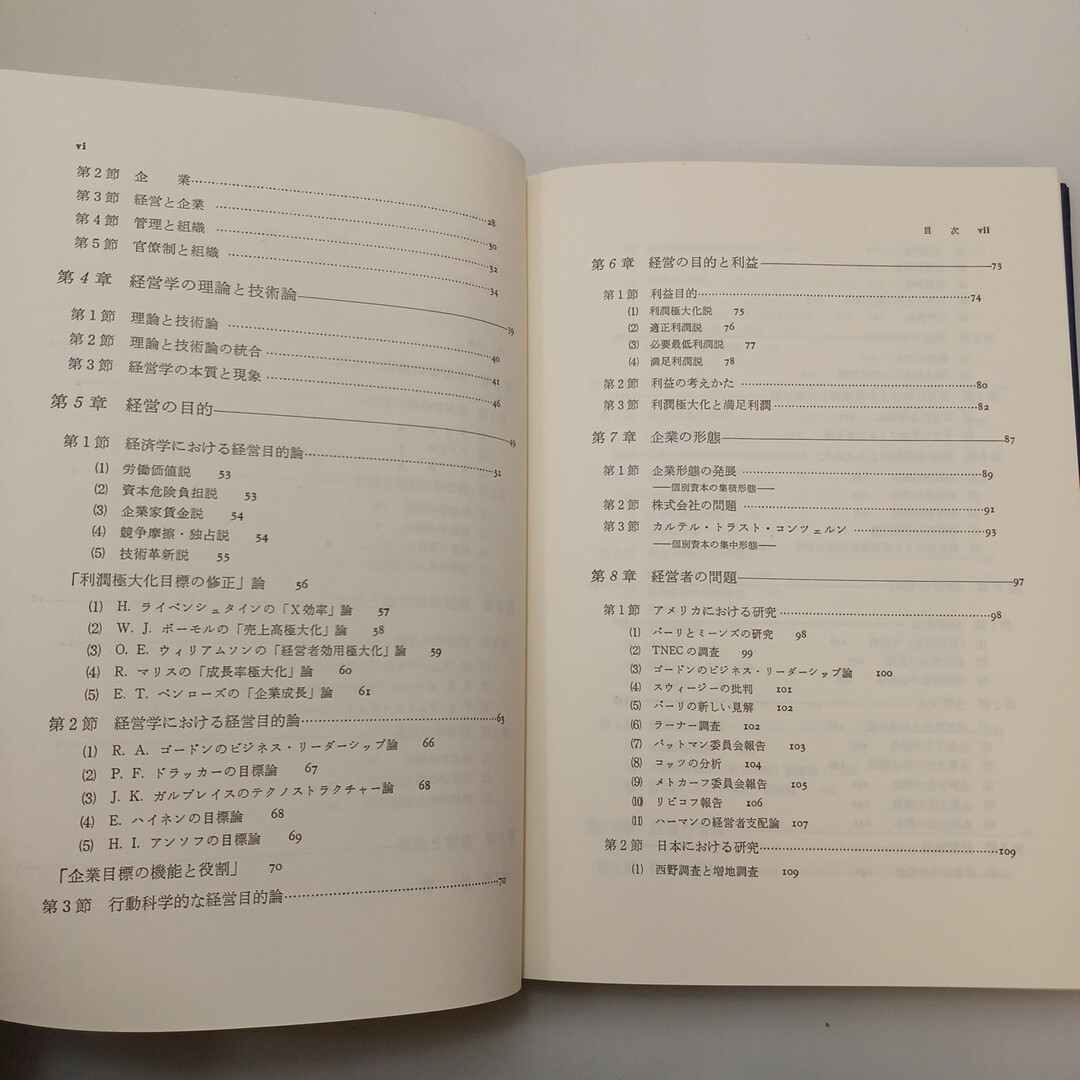 vi
第2節 企 業 28
第3節 経営と企業 30
第4節 管理と組織 32
第5節 官僚制と組織 34
第4章 経営学の理論と技術論 39
第1節 理論と技術論 40
第2節 理論と技術論の統合 41
第3節 経営学の本質と現象 46
第5章 経営の目的 49
第1節 経済学における経営目的論 51
(1) 労働価値説 53
(2) 資本危険負担説 53
(3) 企業家賃金説 54
(4) 競争摩擦・独占説 54
(5) 技術革新説 55
「利潤極大化目標の修正」論 56
(1) H. ライベンシュタインの「X効率」論 57
(2) W. J. ボーモルの「売上高極大化」論 58
(3) O. E. ウィリアムソンの「経営者効用極大化」論 59
(4) R. マリスの「成長率極大化」論 60
(5) E. T. ペンローズの「企業成長」論 61
第2節 経営学における経営目的論 63
(1) R. A. ゴードンのビジネス・リーダーシップ論 66
(2) P. F. ドラッカーの目標論 67
(3) J. K. ガルブレイスのテクノストラクチャー論 68
(4) E. ハイネンの目標論 68
(5) H. I. アンソフの目標論 69
「企業目標の機能と役割」 70
第3節 行動科学的な経営目的論 70
目 次 vii
第6章 経営の目的と利益 73
第1節 利益目的 74
(1) 利潤極大化説 75
(2) 適正利潤説 76
(3) 必要最低利潤説 77
(4) 満足利潤説 78
第2節 利益の考えかた 80
第3節 利潤極大化と満足利潤 82
第7章 企業の形態 87
第1節 企業形態の発展 89
——個別資本の集積形態——
第2節 株式会社の問題 91
第3節 カルテル・トラスト・コンツェルン 93
——個別資本の集中形態——
第8章 経営者の問題 97
第1節 アメリカにおける研究 98
(1) バーリとミーンズの研究 98
(2) TNECの調査 99
(3) ゴードンのビジネス・リーダーシップ論 100
(4) スウィージーの批判 101
(5) バーリの新しい見解 102
(6) ラーナー調査 102
(7) パットマン委員会報告 103
(8) コッツの分析 104
(9) メトカーフ委員会報告 105
(10) リビコフ報告 106
(11) ハーマンの経営者支配論 107
第2節 日本における研究 109
(1) 西野調査と増地調査 109